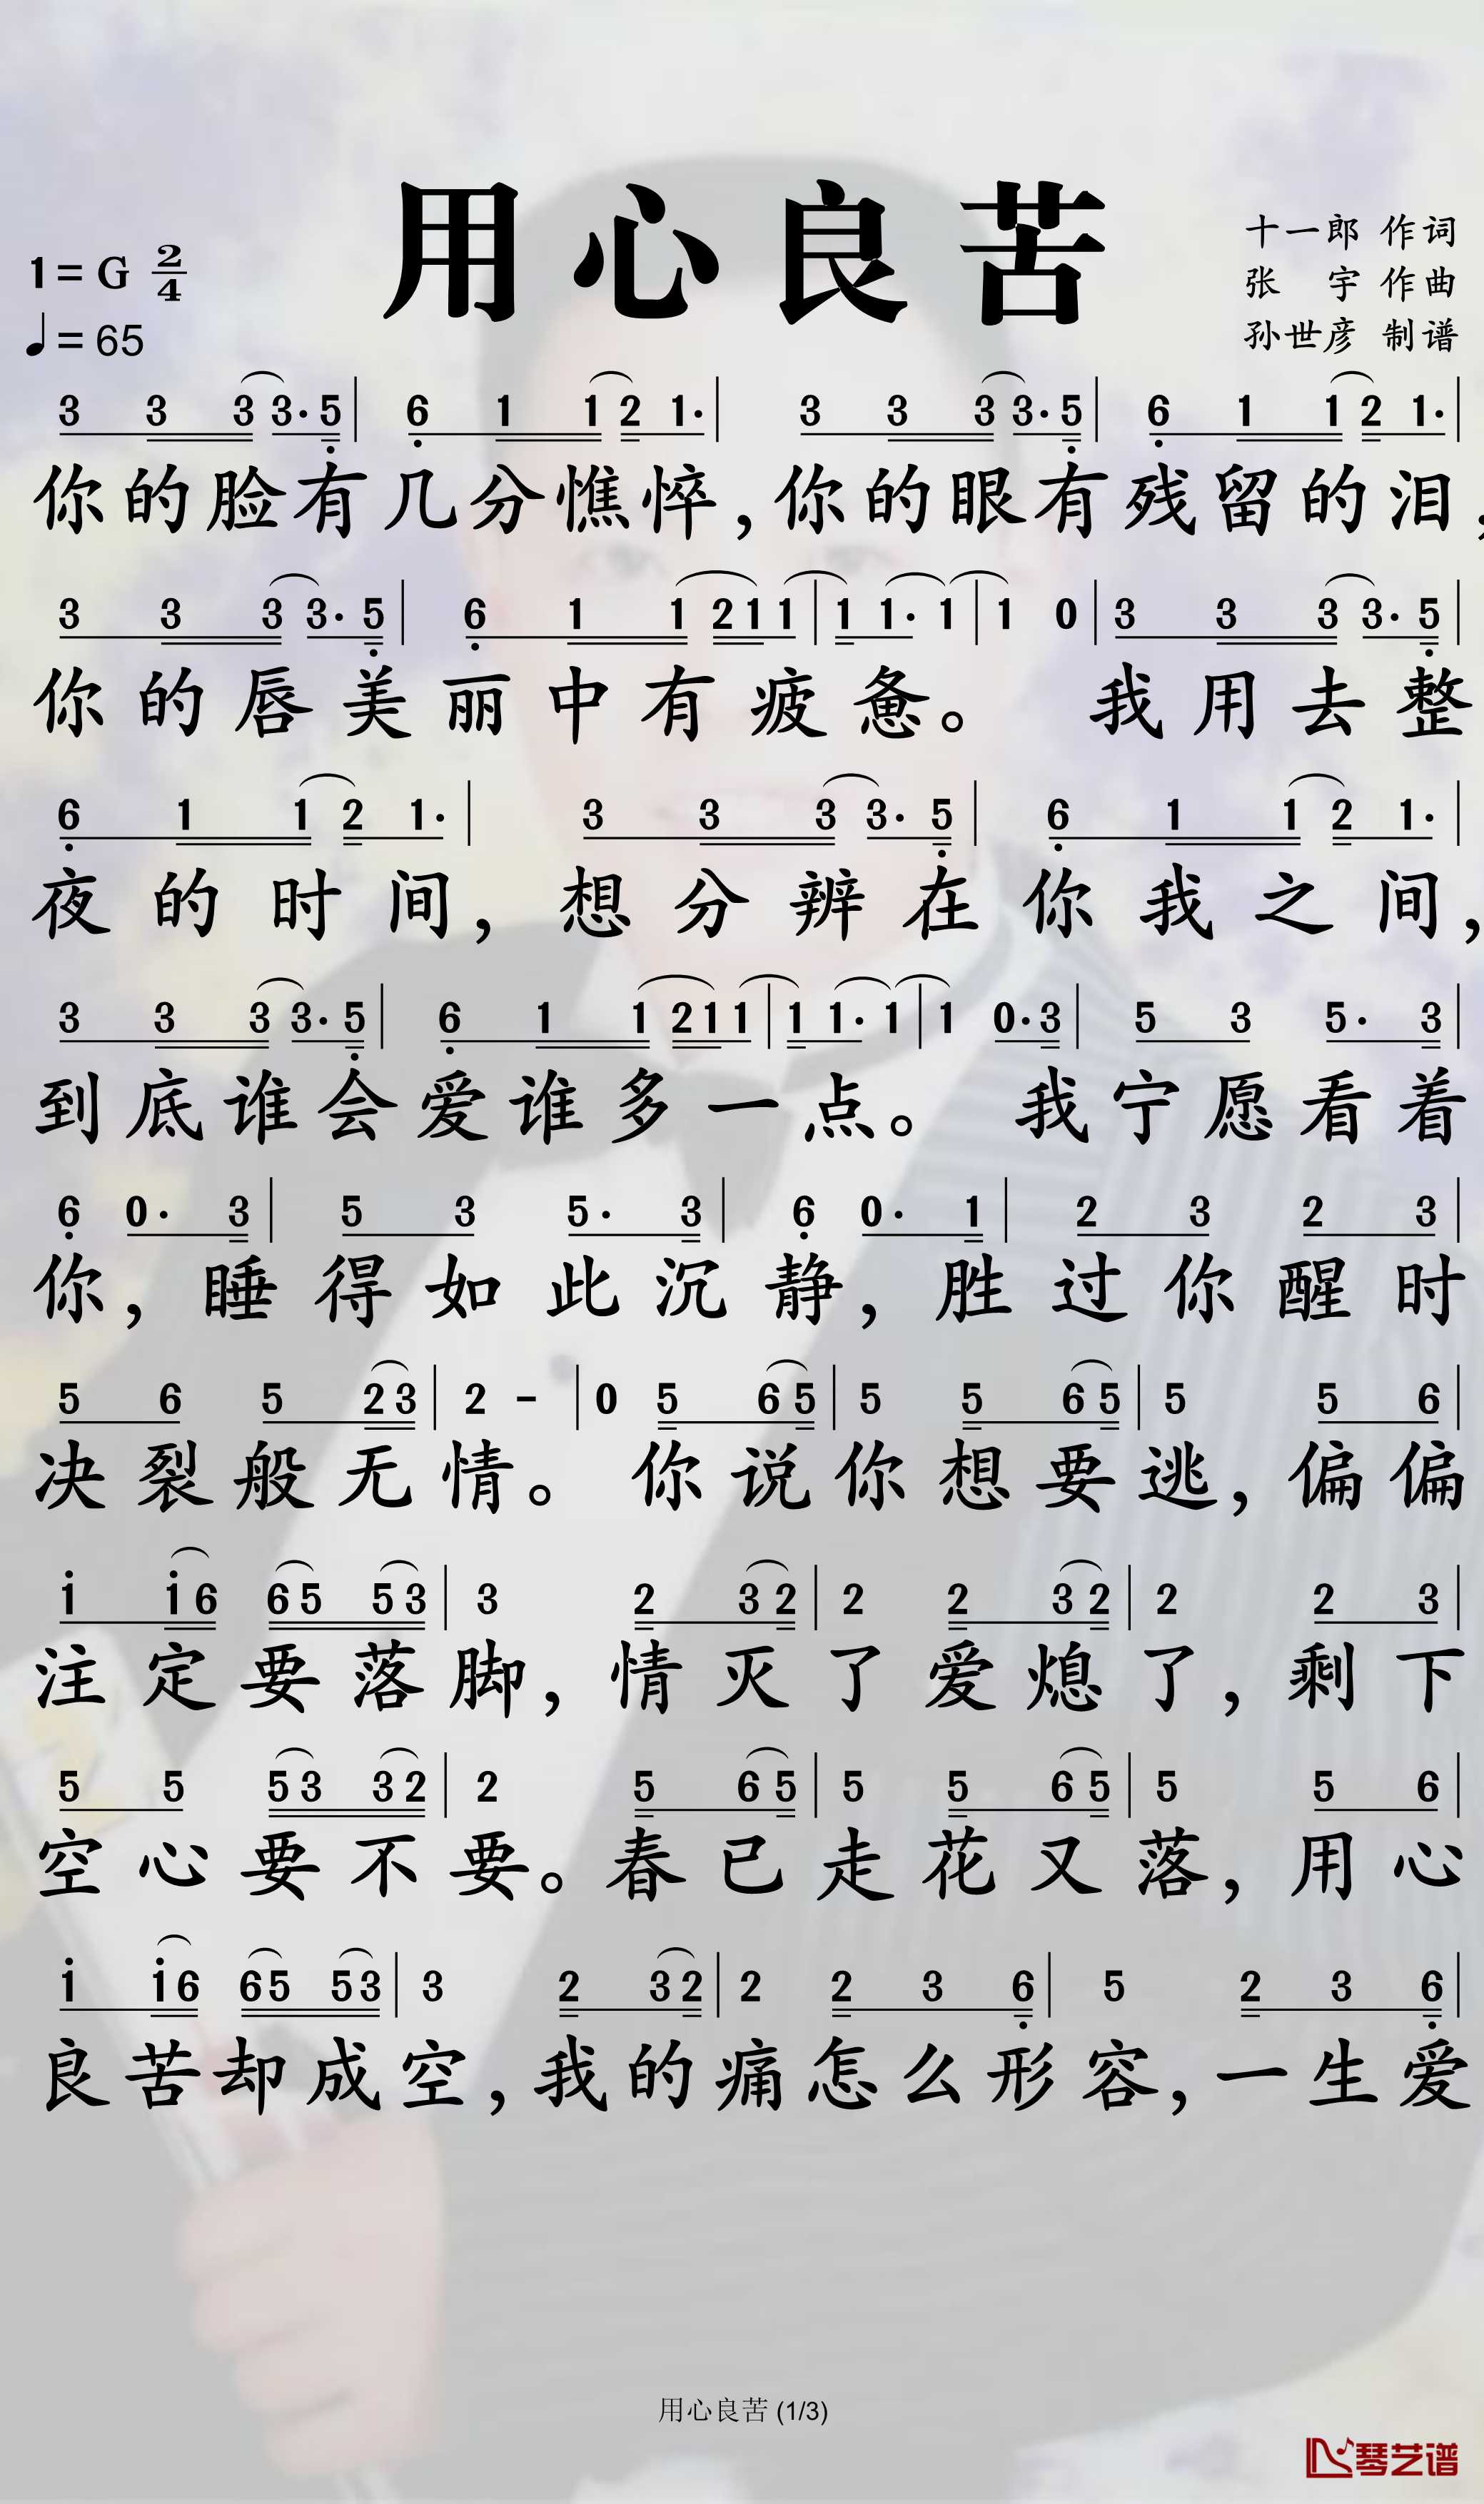 用心良苦
十一郎 作词
1=G 2/4
张 宇 作曲
♩=65
孙世彦 制谱
3 3 3 3· 5 | 6 1 1 2 1· | 3 3 3 3· 5 | 6 1 1 2 1· |
你的脸有几分憔悴,你的眼有残留的泪,
3 3 3 3· 5 | 6 1 1 2 1 1 | 1 1· 1 | 1 0 | 3 3 3 3· 5 |
你的唇美丽中有疲惫。 我用去整
6 1 1 2 1· | 3 3 3 3· 5 | 6 1 1 2 1· |
夜的时间,想分辨在你我之间,
3 3 3 3· 5 | 6 1 1 2 1 1 | 1 1· 1 | 1 0· 3 | 5 3 5· 3 |
到底谁会爱谁多一点。 我宁愿看着
6 0· 3 | 5 3 5· 3 | 6 0· 1 | 2 3 2 3 |
你,睡得如此沉静,胜过你醒时
5 6 5 2 3 | 2 - | 0 5 6 5 | 5 5 6 5 | 5 5 6 |
决裂般无情。你说你想要逃,偏偏
i i 6 6 5 5 3 | 3 2 3 2 | 2 2 3 2 | 2 2 3 |
注定要落脚,情灭了爱熄了,剩下
5 5 5 3 3 2 | 2 5 6 5 | 5 5 6 5 | 5 5 6 |
空心要不要。春已走花又落,用心
i i 6 6 5 5 3 | 3 2 3 2 | 2 2 3 6 | 5 2 3 6 |
良苦却成空,我的痛怎么形容,一生爱
用心良苦 (1/3)
琴艺谱